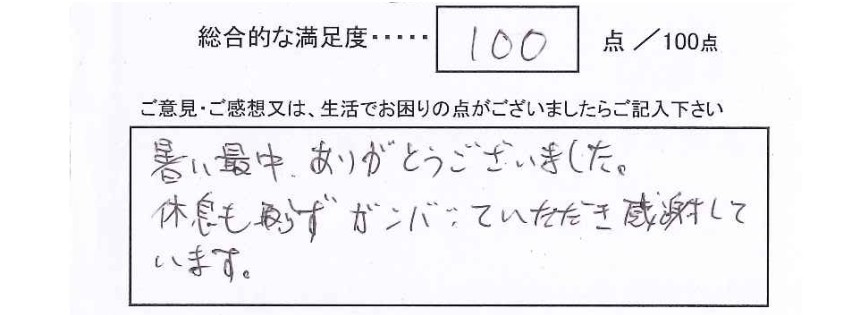 総合的な満足度・・・・・ 100 点 ／100点
ご意見・ご感想又は、生活でお困りの点がございましたらご記入下さい
暑い最中、ありがとうございました。
休息も取らず ガンバっていただき感謝して
います。